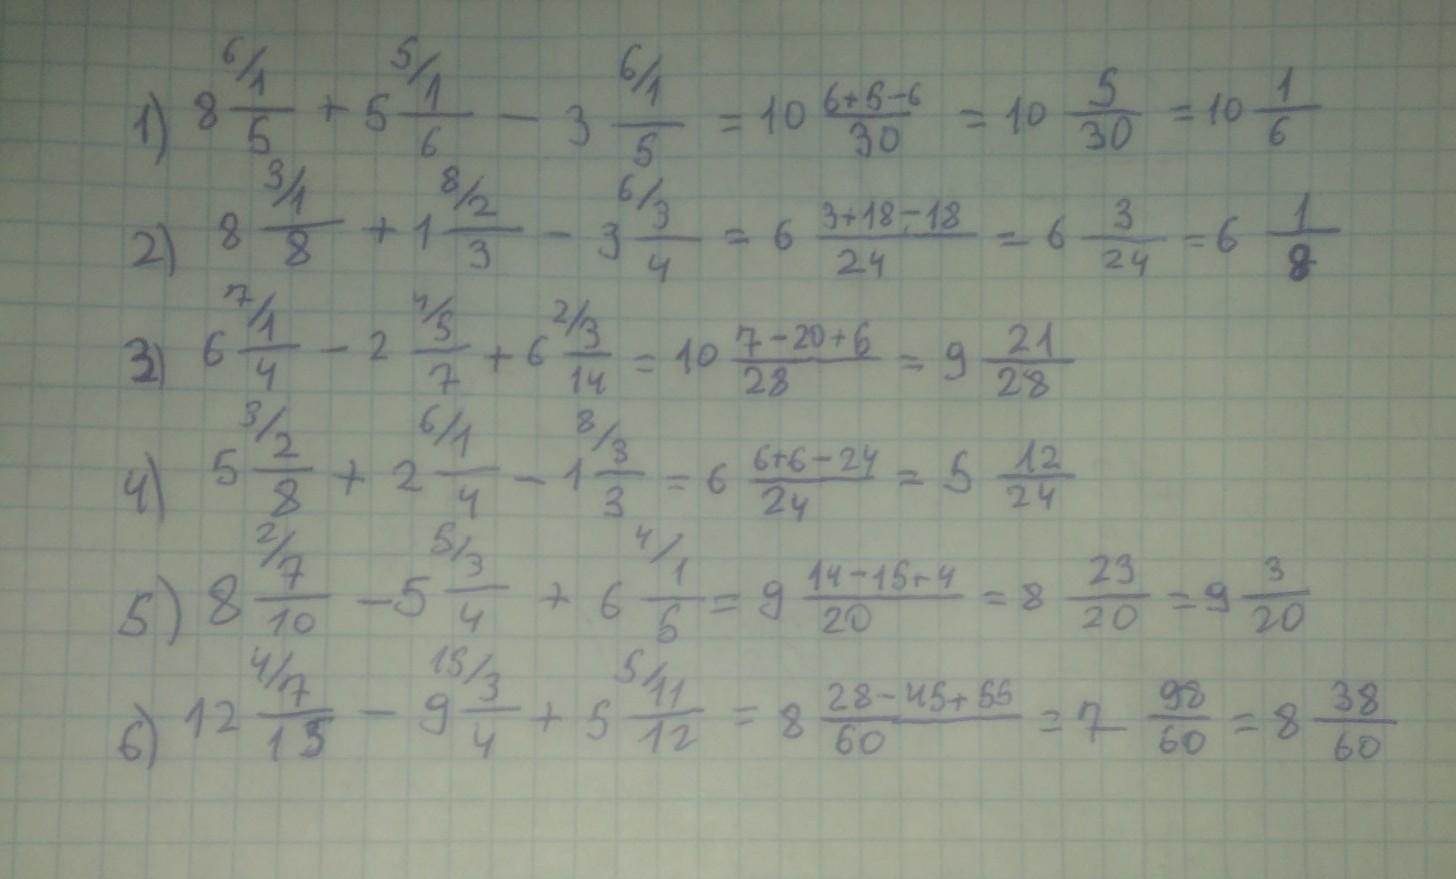 1) 8 6/1/5 + 5 5/1/6 - 3 6/1/5 = 10 (6+5-6)/30 = 10 5/30 = 10 1/6
2) 8 3/1/8 + 1 8/2/3 - 3 6/3/4 = 6 (3+18-18)/24 = 6 3/24 = 6 1/8
3) 6 7/1/4 - 2 4/5/7 + 6 2/3/14 = 10 (7-20+6)/28 = 9 21/28
4) 5 3/2/8 + 2 6/1/4 - 1 8/3/3 = 6 (6+6-24)/24 = 5 12/24
5) 8 2/7/10 - 5 5/3/4 + 6 4/1/5 = 9 (14-15+4)/20 = 8 23/20 = 9 3/20
6) 12 4/7/15 - 9 15/3/4 + 5 5/11/12 = 8 (28-45+55)/60 = 7 98/60 = 8 38/60